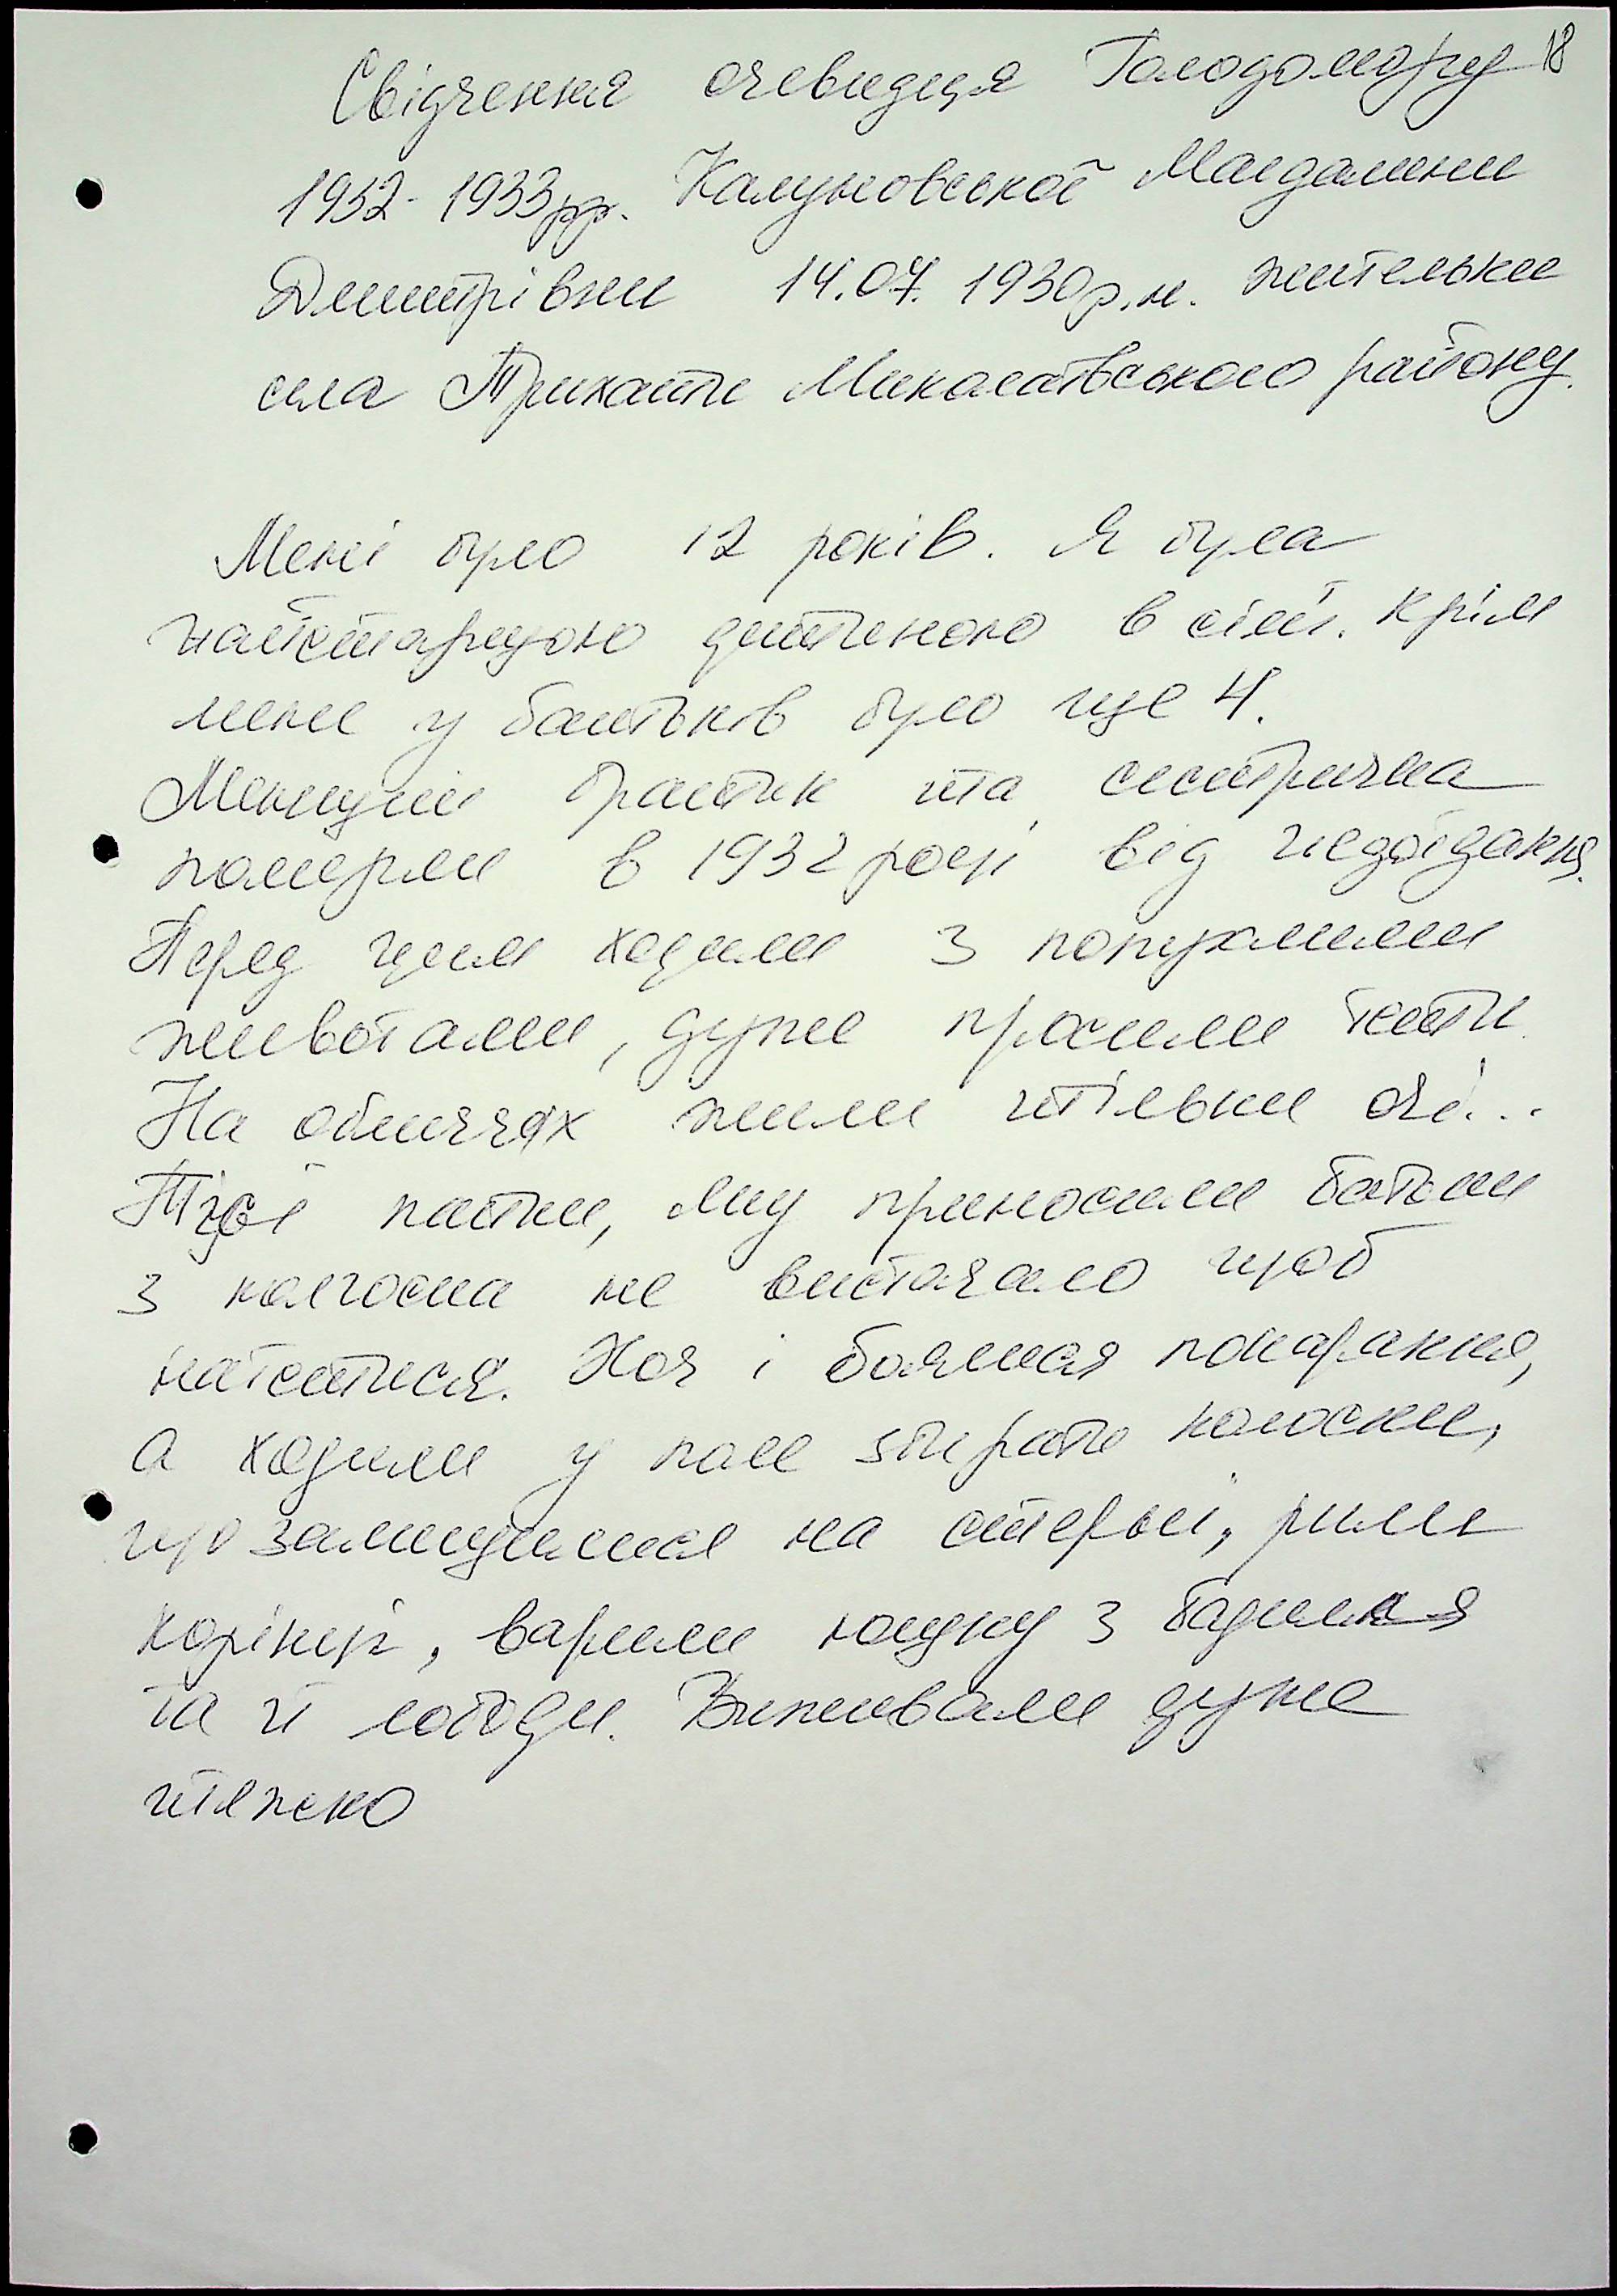 18
Свідчення очевидця Голодомору
1932-1933рр. Калуновської Магдалини
Дмитрівни 14.07.1930р.н. жительки
села Трихати Миколаївського району.
Мені було 12 років. Я була
найстаршою дитиною в сімї. Крім
мене у батьків було ще 4.
Менший братик та сестричка
померли в 1932 році від недоїдання.
Перед цим ходили з попухлими
животами, дуже просили їсти.
На обличчях жили тільки очі...
Тієї пайки, яку приносили батьки
з колгоспа не вистачало щоб
наїстися. Хоч і боялися покарання,
а ходили у поле збирати колоски,
що залишилися на стерні, рили
корінці, варили юшку з бадилля
та й лободи. Виживали дуже
тяжко